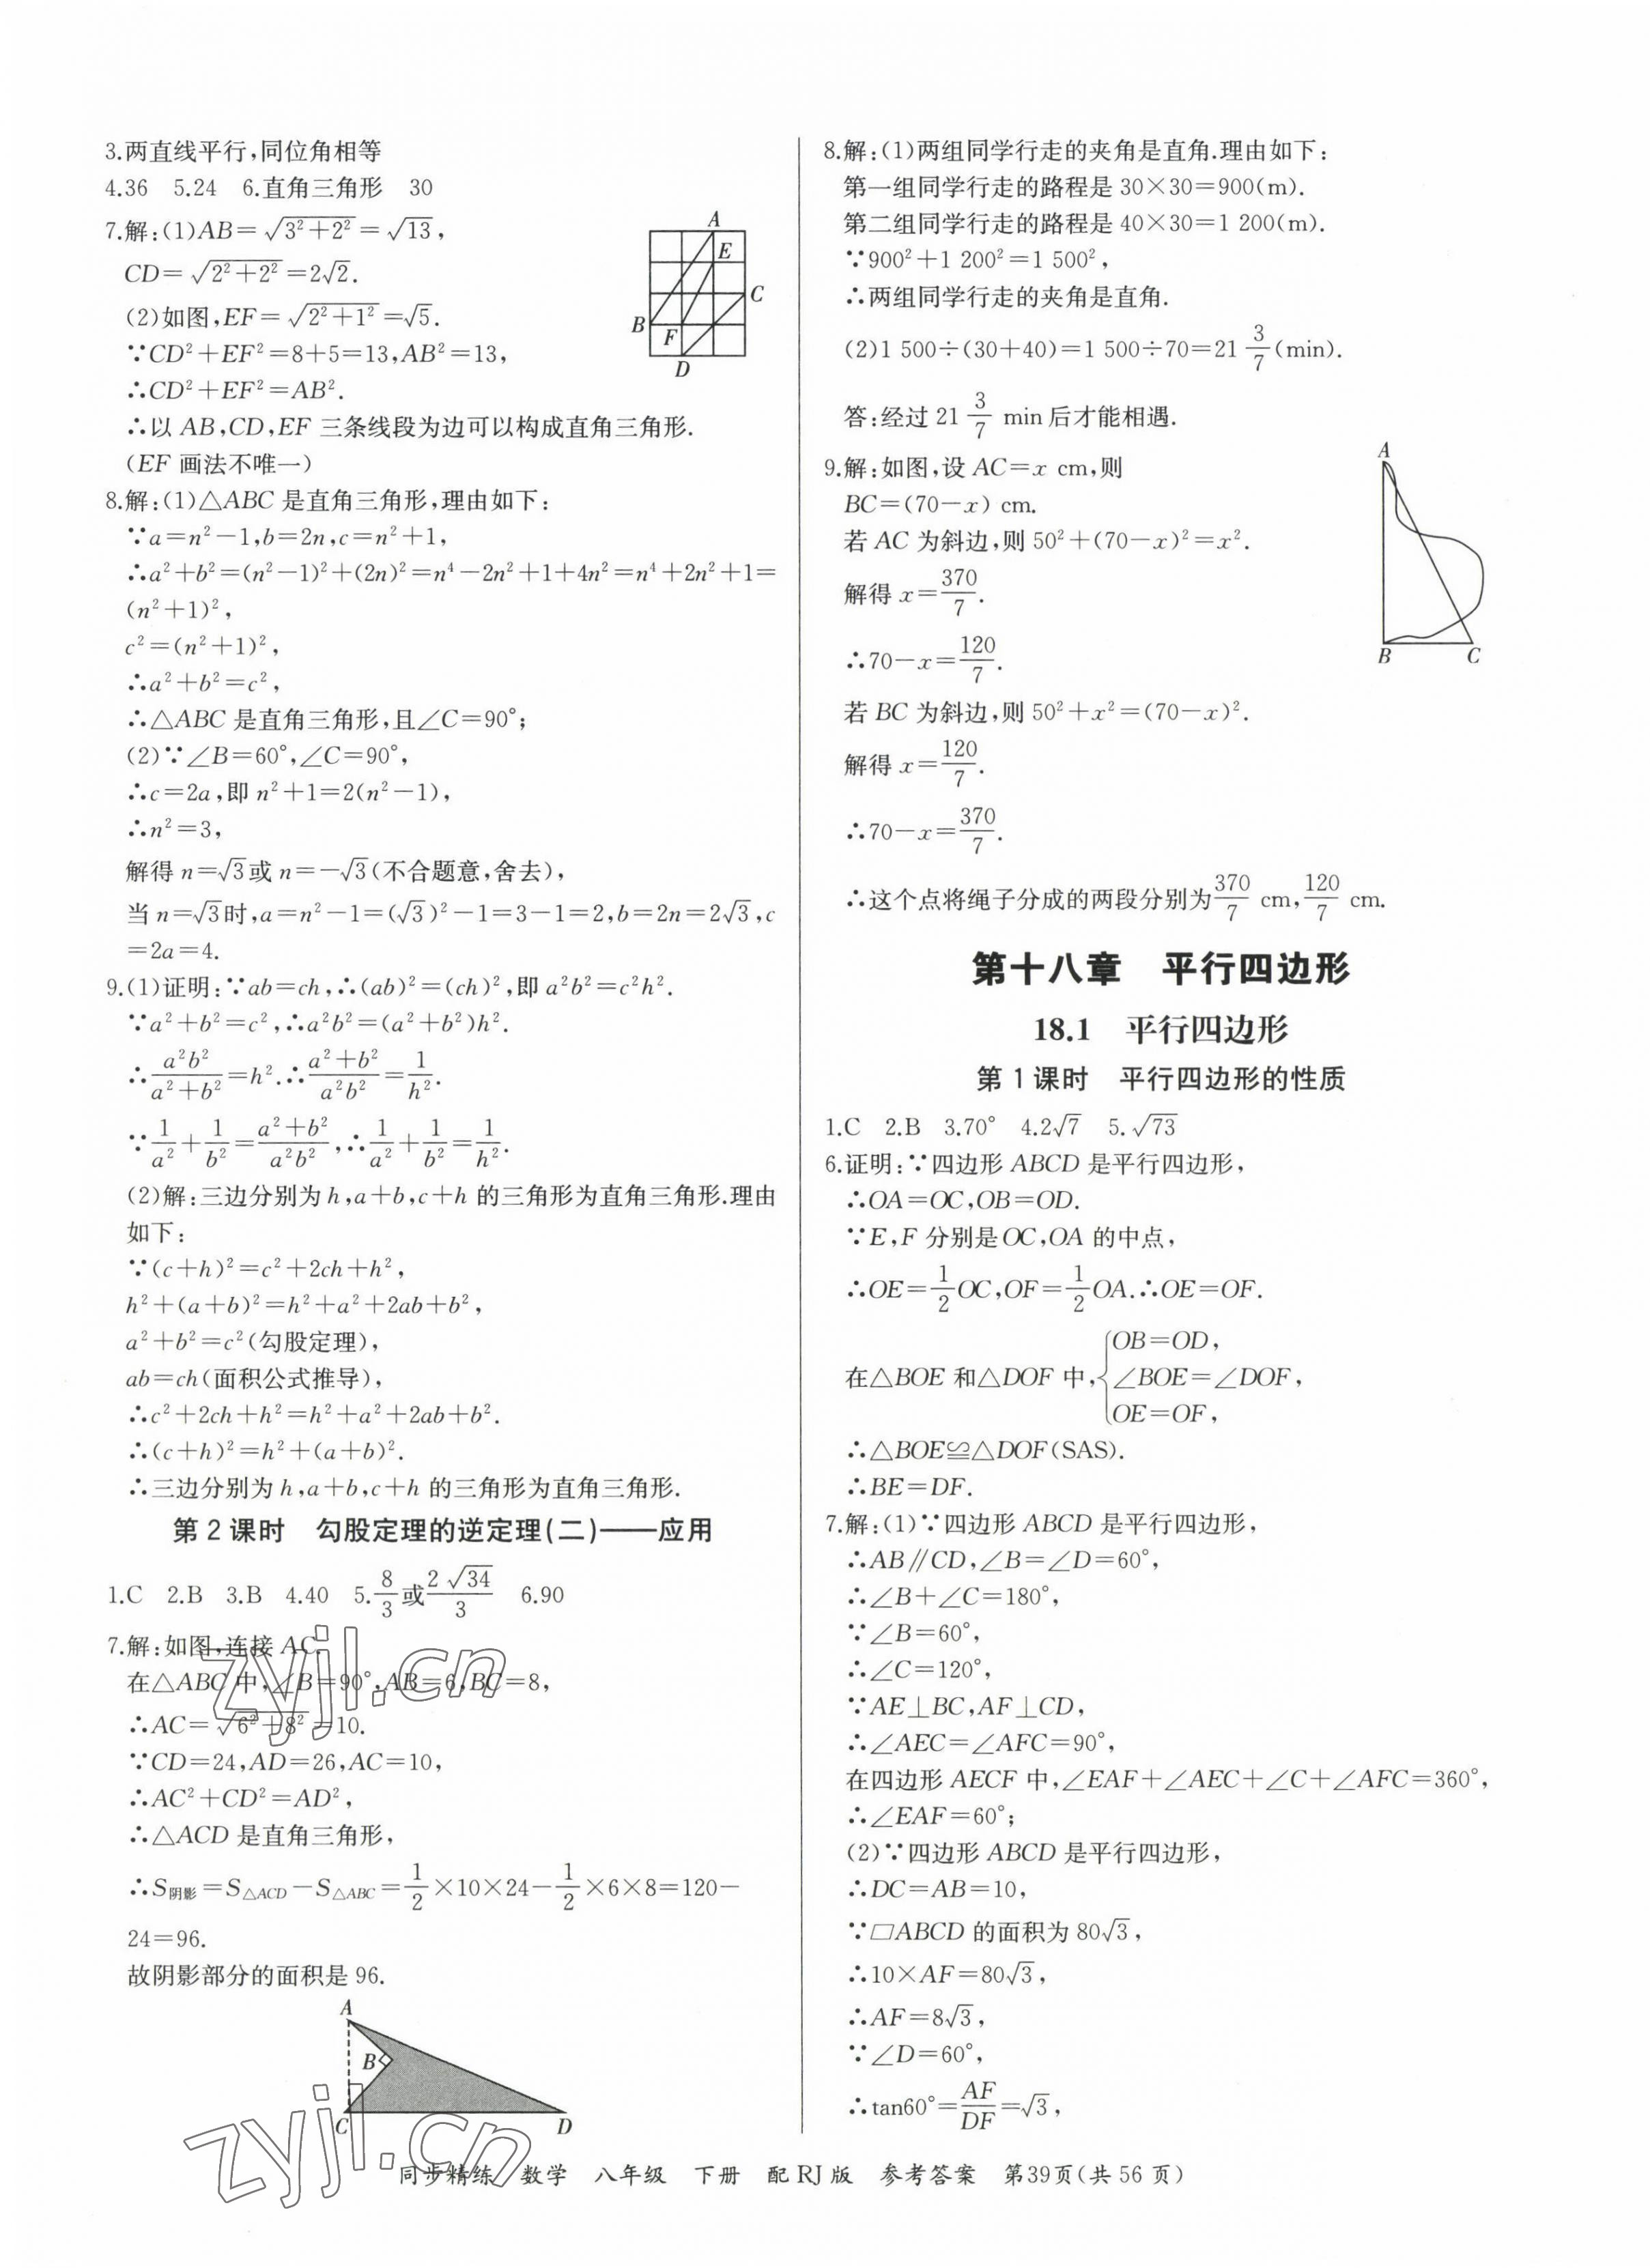 3.两直线平行,同位角相等
4.36 5.24 6.直角三角形 30
7.解:(1)AB=√(3²+2²)=√13,
CD=√(2²+2²)=2√2.
(2)如图,EF=√(2²+1²)=√5.
∵CD²+EF²=8+5=13,AB²=13,
∴CD²+EF²=AB².
∴以AB,CD,EF三条线段为边可以构成直角三角形.
(EF画法不唯一)
A
E
C
B
F
D
8.解:(1)△ABC是直角三角形,理由如下:
∵a=n²-1,b=2n,c=n²+1,
∴a²+b²=(n²-1)²+(2n)²=n⁴-2n²+1+4n²=n⁴+2n²+1=
(n²+1)²,
c²=(n²+1)²,
∴a²+b²=c²,
∴△ABC是直角三角形,且∠C=90°;
(2)∵∠B=60°,∠C=90°,
∴c=2a,即n²+1=2(n²-1),
∴n²=3,
解得n=√3或n=-√3(不合题意,舍去),
当n=√3时,a=n²-1=(√3)²-1=3-1=2,b=2n=2√3,c
=2a=4.
9.(1)证明:∵ab=ch,∴(ab)²=(ch)²,即a²b²=c²h².
∵a²+b²=c²,∴a²b²=(a²+b²)h².
∴a²b²/(a²+b²)=h².∴(a²+b²)/a²b²=1/h².
∵1/a²+1/b²=(a²+b²)/a²b²,∴1/a²+1/b²=1/h².
(2)解:三边分别为h,a+b,c+h的三角形为直角三角形.理由
如下:
∵(c+h)²=c²+2ch+h²,
h²+(a+b)²=h²+a²+2ab+b²,
a²+b²=c²(勾股定理),
ab=ch(面积公式推导),
∴c²+2ch+h²=h²+a²+2ab+b².
∴(c+h)²=h²+(a+b)².
∴三边分别为h,a+b,c+h的三角形为直角三角形.
第2课时 勾股定理的逆定理(二)——应用
1.C 2.B 3.B 4.40 5.8/3或2√34/3 6.90
7.解:如图,连接AC.
在△ABC中,∠B=90°,AB=6,BC=8,
∴AC=√(6²+8²)=10.
∵CD=24,AD=26,AC=10,
∴AC²+CD²=AD²,
∴△ACD是直角三角形,
∴S阴影=S△ACD-S△ABC=1/2×10×24-1/2×6×8=120-
24=96.
故阴影部分的面积是96.
A
B
C
D
zyjl.cn
zyjl.cn
8.解:(1)两组同学行走的夹角是直角.理由如下:
第一组同学行走的路程是30×30=900(m).
第二组同学行走的路程是40×30=1 200(m).
∵900²+1 200²=1 500²,
∴两组同学行走的夹角是直角.
(2)1 500÷(30+40)=1 500÷70=21 3/7(min).
答:经过21 3/7 min后才能相遇.
9.解:如图,设AC=x cm,则
BC=(70-x) cm.
若AC为斜边,则50²+(70-x)²=x².
解得x=370/7.
∴70-x=120/7.
若BC为斜边,则50²+x²=(70-x)².
解得x=120/7.
∴70-x=370/7.
∴这个点将绳子分成的两段分别为370/7 cm,120/7 cm.
A
B
C
第十八章 平行四边形
18.1 平行四边形
第1课时 平行四边形的性质
1.C 2.B 3.70° 4.2√7 5.√73
6.证明:∵四边形ABCD是平行四边形,
∴OA=OC,OB=OD.
∵E,F分别是OC,OA的中点,
∴OE=1/2OC,OF=1/2OA.∴OE=OF.
在△BOE和△DOF中,{OB=OD,
∠BOE=∠DOF,
OE=OF,
∴△BOE≌△DOF(SAS).
∴BE=DF.
7.解:(1)∵四边形ABCD是平行四边形,
∴AB∥CD,∠B=∠D=60°,
∴∠B+∠C=180°,
∵∠B=60°,
∴∠C=120°,
∵AE⊥BC,AF⊥CD,
∴∠AEC=∠AFC=90°,
在四边形AECF中,∠EAF+∠AEC+∠C+∠AFC=360°,
∴∠EAF=60°;
(2)∵四边形ABCD是平行四边形,
∴DC=AB=10,
∵▱ABCD的面积为80√3,
∴10×AF=80√3,
∴AF=8√3,
∵∠D=60°,
∴tan60°=AF/DF=√3,
同步精练 数学 八年级 下册 配RJ版 参考答案 第39页(共56页)